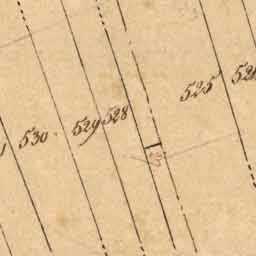 530
529
528
525